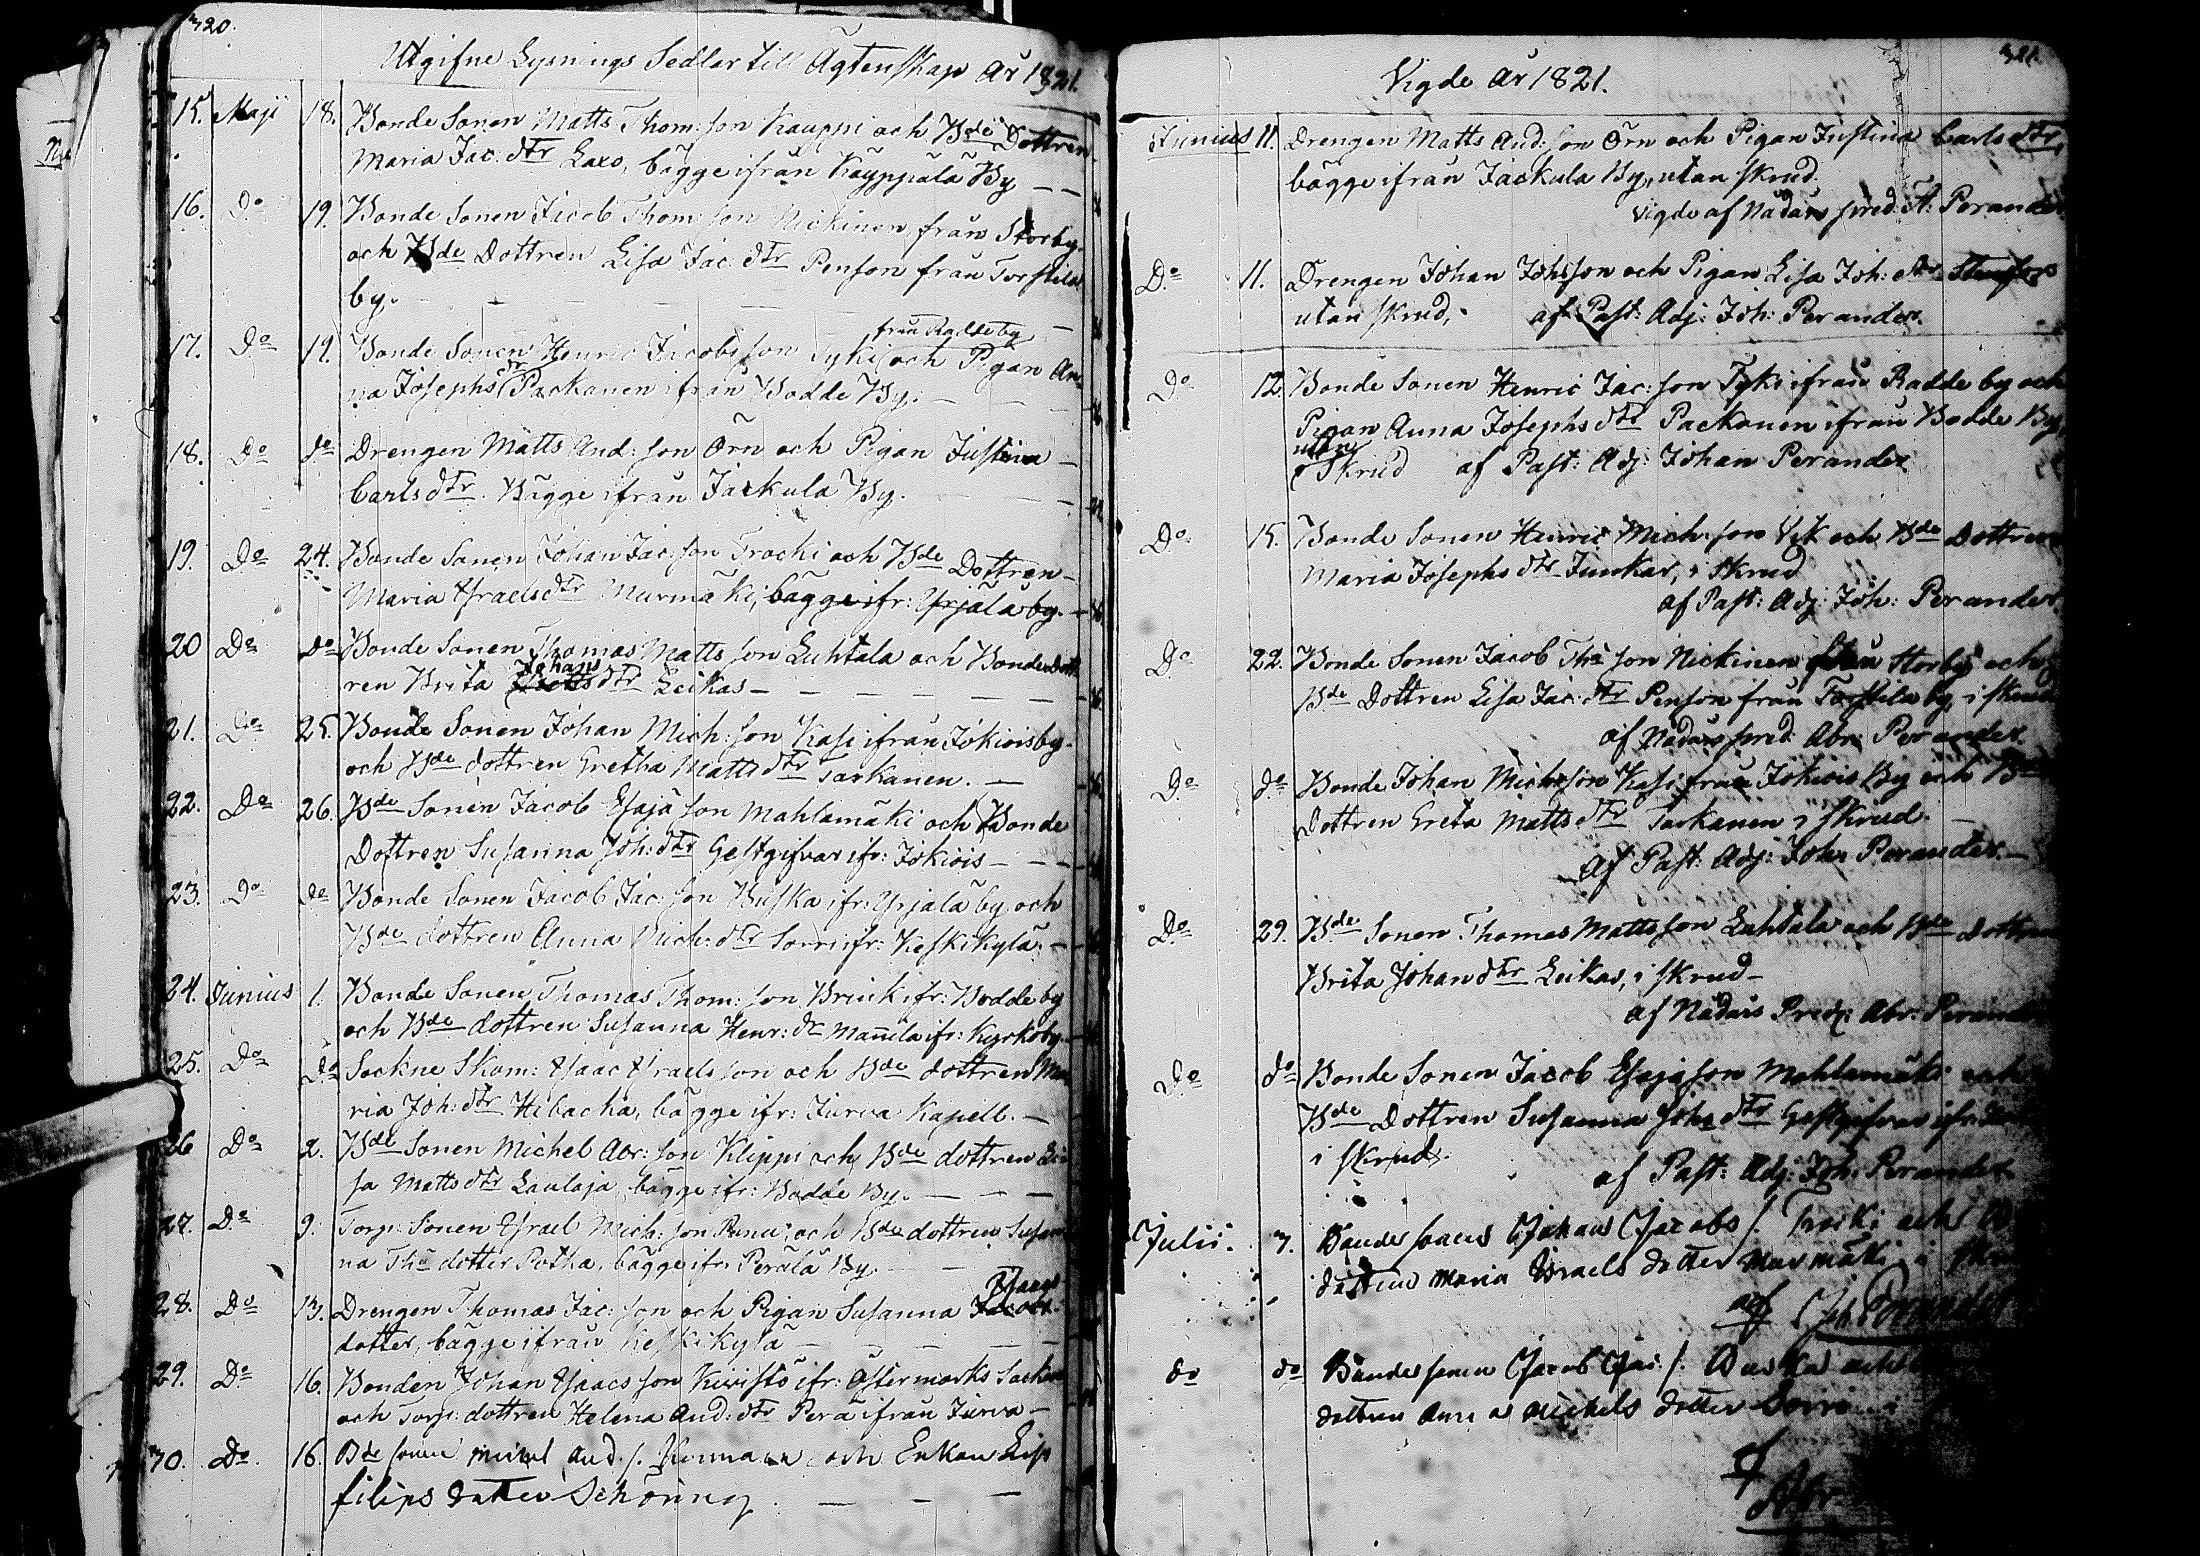 320.
Utgifne Lysnings Sedlar till Ägtenskap år 1821.
15. Maji 18. Bonde Sonen Matts Thom: son Kauppi och Bde Dottren
Maria Jac: dtr Laxo, bägge ifrån Käyppälä By
16. Do 19. Bonde Sonen Jacob Thom: son Nickinen från Storby
och Bde Dottren Lisa Jac: dtr Penson från Torstila
by.
från Radde by
17. Do 19. Bonde Sonen Henric Jacobs son Tyki och Pigan An-
na Josephs dr Packanen ifrån Bodde By.
18. Do do Drengen Matts And: son Örn och Pigan Justina
Carls dtr. Bägge ifrån Jackula By.
19. Do 24. Bonde Sonen Johan Jac: son Trocki och Bde Dottren
Maria Israels dtr Murmäki, bägge ifr: Yrjälä by.
20 Do Do Bonde Sonen Thomas Matts son Luhtala och Bonde Dott-
ren Brita Johans dtr Leikas
21. Do 25. Bonde Sonen Johan Mich: son Kasi ifrån Jokiois by
och Bde dottren Gretha Matts dtr Tarkanen.
22. Do 26. Bde Sonen Jacob Esaja son Mahlamäki och Bonde
Dottren Susanna Joh: dtr Gestgifvar ifr: Jokiois
23. Do do Bonde Sonen Jacob Jac: son Buska ifr: Yrjälä by och
Bde dottren Anna Mich: dtr Sorri ifr: Keskikylä
24. Junius 1. Bonde Sonen Thomas Thom: son Brink ifr: Bodde by
och Bde dottren Susanna Henr: dr Mannila ifr: Kyrkoby
25. Do Do Sockne Skom: Isaac Israels son och Bde dottren Ma-
ria Joh: dtr Hibacka, bägge ifr: Jurva Kapell.
26 Do 2. Bde Sonen Michel Abr: son Klippi och Bde dottren Li-
sa Matts dtr Laulaja, bägge ifr: Bodde By.
27. Do 9. Torp: Sonen Israel Mich: son Panu och Bde dottren Susan
na Tho dotter Potka, bägge ifr: Perälä By.
Isaacs
28. Do 13. Drengen Thomas Jac: son och Pigan Susanna Jacobs
dotter, bägge ifrån Keskikylä
29. Do 16. Bonden Johan Isaacs son Kivistö ifr: Östermarks Sockne
och Torp: dottren Helena And: dtr Perä ifrån Jurva
30. Do 16. Bde sonen Michel And. s. och Enkan Lisa
filips dotter Schöring.
321.
Vigde år 1821.
Junius 11. Drengen Matts And: son Örn och Pigan Justina Carls dtr,
bägge ifrån Jackula By, utan skrud.
Vigde af Nådårs pred: A: Perander
Do 11. Drengen Johan Johsson och Pigan Lisa Joh: dtr
utan skrud, af Past: Adj: Joh: Perander.
Do 12. Bonde Sonen Henric Jac: son Tyki ifrån Radde by och
Pigan Anna Josephs dtr Packanen ifrån Bodde By,
utan
Skrud af Past: Adj: Johan Perander
Do 15. Bonde Sonen Henric Mich: son Vik och Bde Dottren
Maria Josephs dtr Junkar, i Skrud
af Past: Adj: Joh: Perander.
Do 22. Bonde Sonen Jacob Tho son Nickinen från Storby och
Bde Dottren Lisa Jac: dtr Penson från Torstila by, i skrud
af Nådårs pred: Abr: Perander.
Do do Bonde Johan Michsson Kasi från Jokiois By och Bde
Dottren Greta Matts dtr Tarkanen i skrud.
Af Past: Adj: Joh: Perander.
Do 29. Bde Sonen Thomas Matts son Luhtala och Bde Dottren
Brita Johan dtr Leikas, i skrud
af Nådårs Pred: Abr: Perander
Do do Bonde Sonen Jacob Esaja son Mahlamäki och
Bde Dottren Susanna Joh: dtr Gestgifvar ifr:
i skrud.
af Past: Adj: Joh: Perander
Julii. 7. Bonde sonen Johans Jacobs s. Trocki och
dottren Maria Israels dotter Murmäki i
af Joh Perander
do do Bonde sonen Jacob Jac: s. Buska och
dottren Anna Michels dotter Sorri i
af
Abr